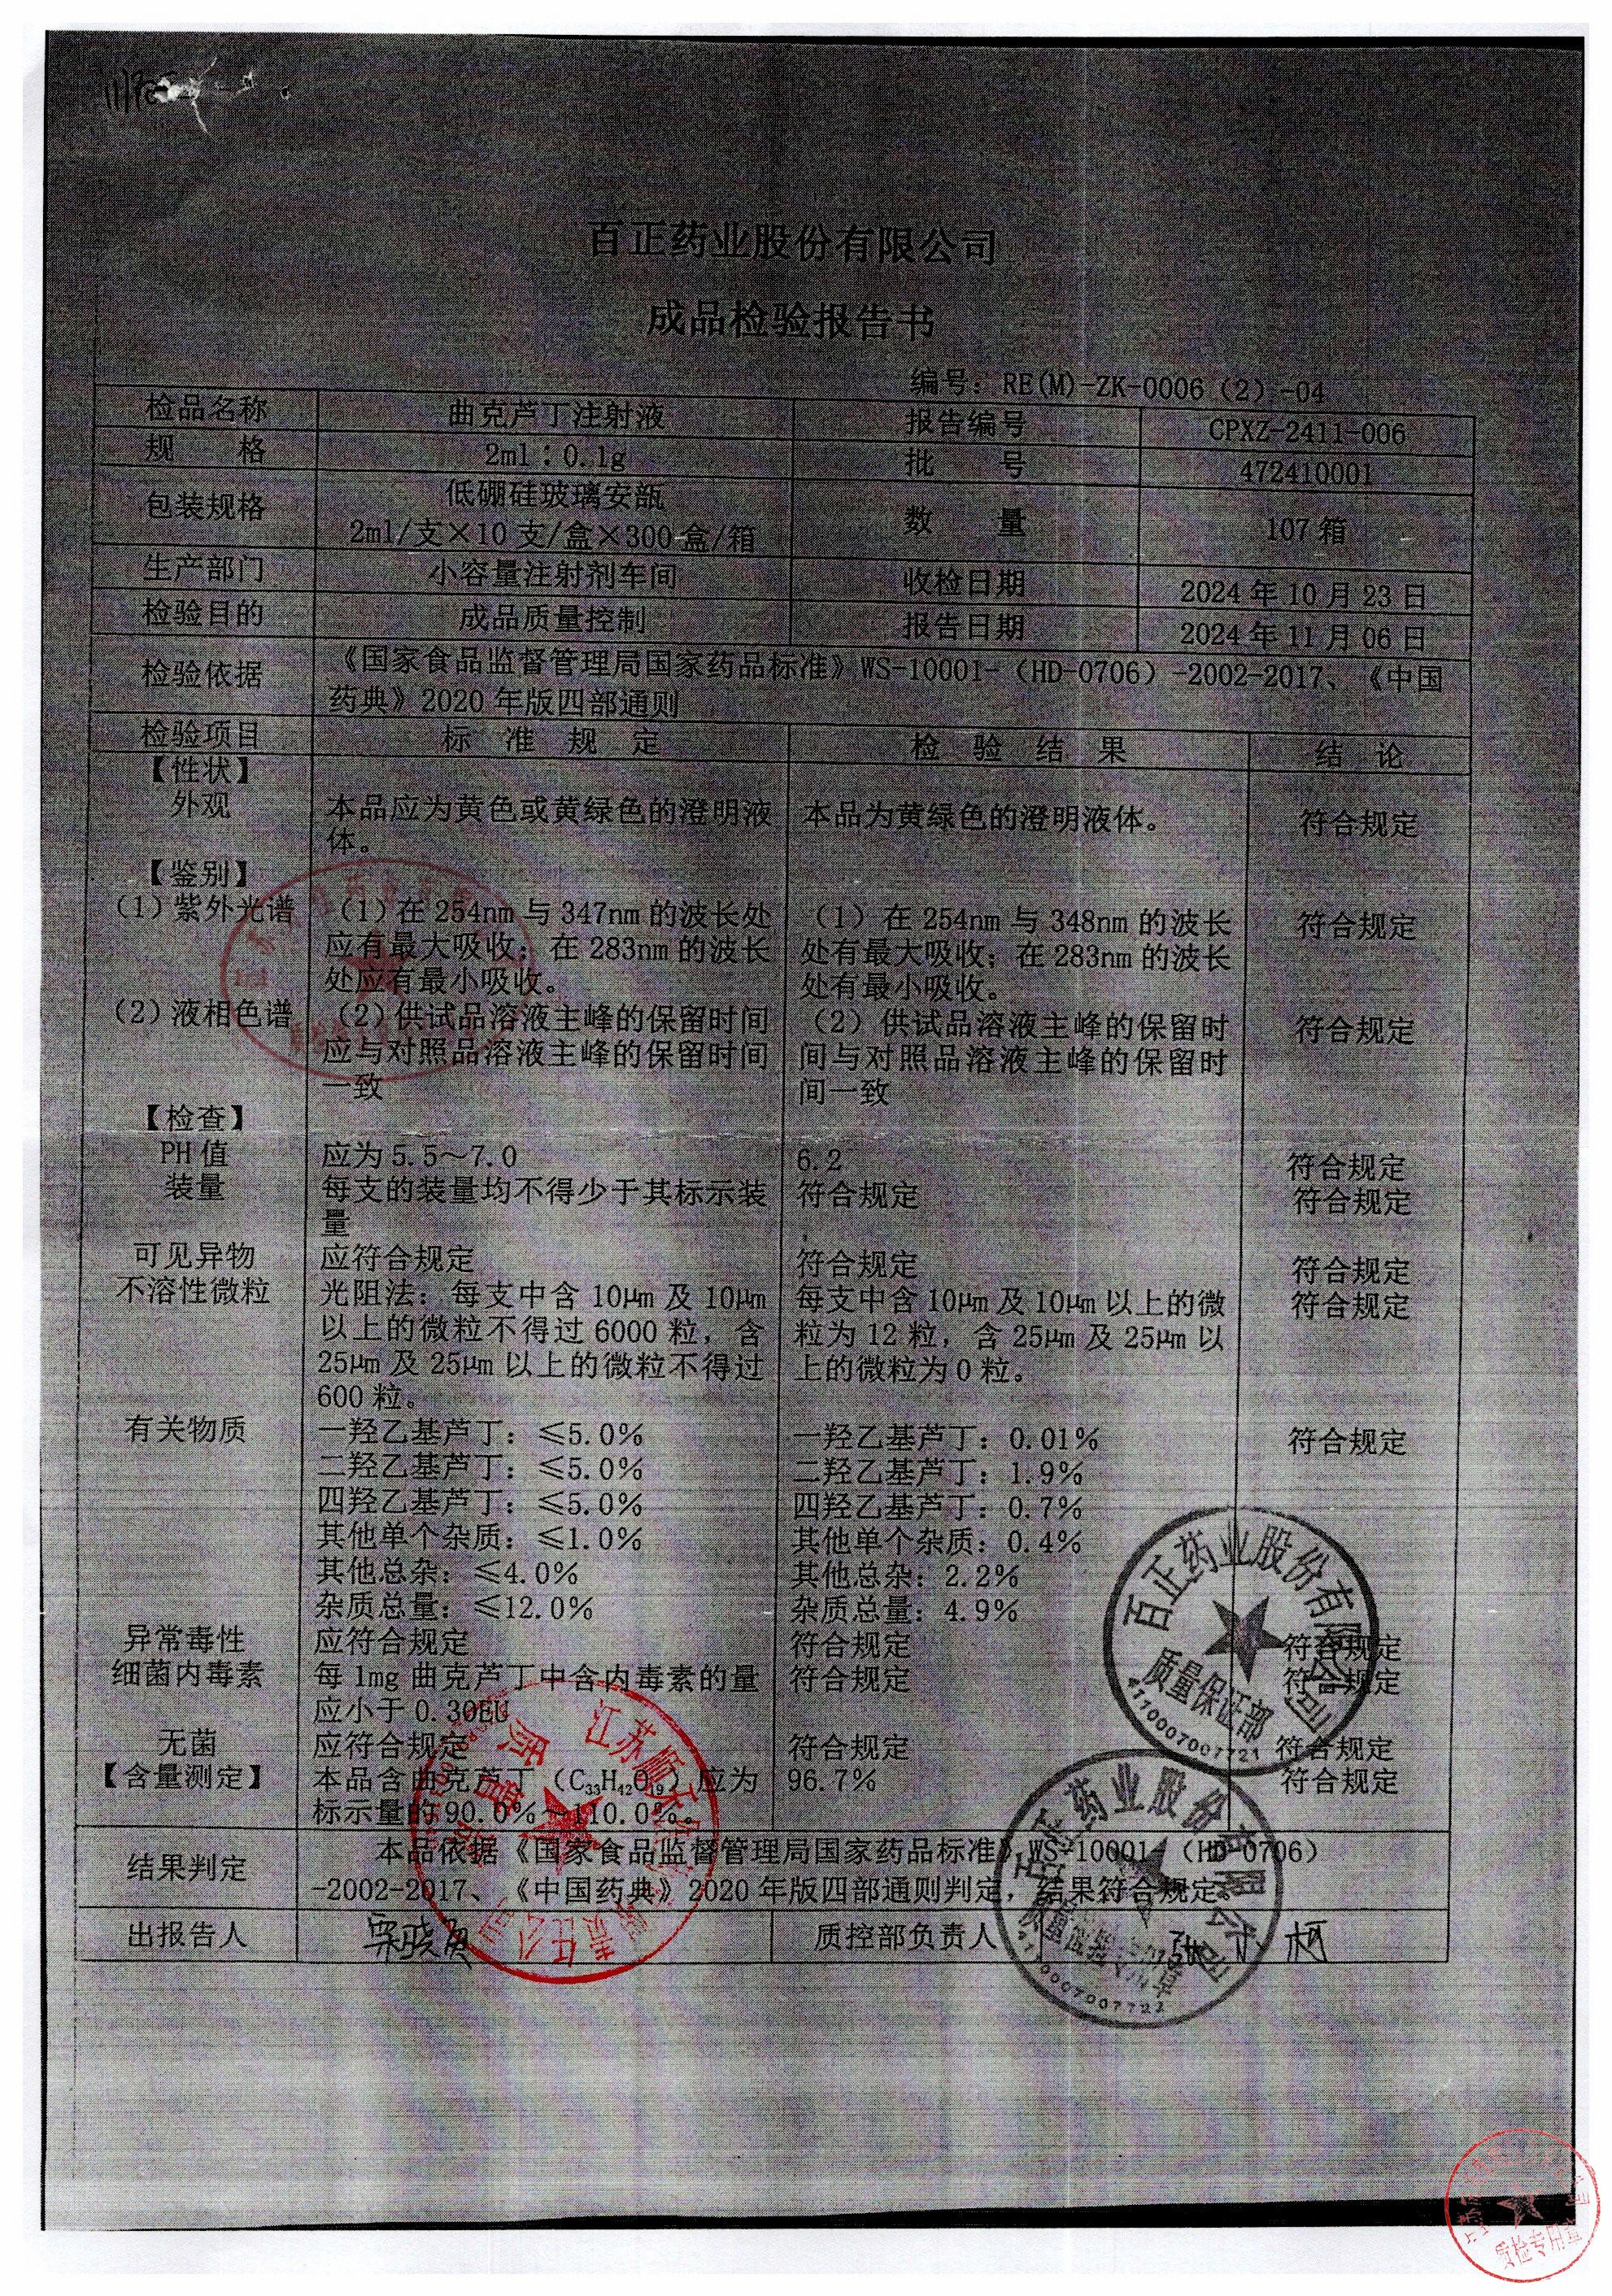 百正药业股份有限公司
成品检验报告书
编号：RE(M)-ZK-0006（2）-04
检品名称 曲克芦丁注射液 报告编号 CPXZ-2411-006
规 格 2ml：0.1g 批 号 472410001
包装规格 低硼硅玻璃安瓿 数 量 107箱
2ml/支×10支/盒×300盒/箱
生产部门 小容量注射剂车间 收检日期 2024年10月23日
检验目的 成品质量控制 报告日期 2024年11月06日
检验依据 《国家食品监督管理局国家药品标准》WS-10001-（HD-0706）-2002-2017、《中国
药典》2020年版四部通则
检验项目 标 准 规 定 检 验 结 果 结 论
【性状】
外观 本品应为黄色或黄绿色的澄明液 本品为黄绿色的澄明液体。 符合规定
体。
【鉴别】
(1)紫外光谱 （1）在254nm与347nm的波长处 （1）在254nm与348nm的波长 符合规定
应有最大吸收；在283nm的波长 处有最大吸收；在283nm的波长
处应有最小吸收。 处有最小吸收。
(2)液相色谱 （2）供试品溶液主峰的保留时间 （2）供试品溶液主峰的保留时 符合规定
应与对照品溶液主峰的保留时间 间与对照品溶液主峰的保留时
一致 间一致
【检查】
PH值 应为5.5～7.0 6.2 符合规定
装量 每支的装量均不得少于其标示装 符合规定 符合规定
量
可见异物 应符合规定 符合规定 符合规定
不溶性微粒 光阻法：每支中含10μm及10μm 每支中含10μm及10μm以上的微 符合规定
以上的微粒不得过6000粒，含 粒为12粒，含25μm及25μm以
25μm及25μm以上的微粒不得过 上的微粒为0粒。
600粒。
有关物质 一羟乙基芦丁：≤5.0% 一羟乙基芦丁：0.01% 符合规定
二羟乙基芦丁：≤5.0% 二羟乙基芦丁：1.9%
四羟乙基芦丁：≤5.0% 四羟乙基芦丁：0.7%
其他单个杂质：≤1.0% 其他单个杂质：0.4%
其他总杂：≤4.0% 其他总杂：2.2%
杂质总量：≤12.0% 杂质总量：4.9%
异常毒性 应符合规定 符合规定 符合规定
细菌内毒素 每1mg曲克芦丁中含内毒素的量 符合规定 符合规定
应小于0.30EU
无菌 应符合规定 符合规定 符合规定
【含量测定】 本品含曲克芦丁（C33H42O19）应为 96.7% 符合规定
标示量的90.0%～110.0%。
结果判定 本品依据《国家食品监督管理局国家药品标准》WS-10001-（HD-0706）
-2002-2017、《中国药典》2020年版四部通则判定，结果符合规定
出报告人 质控部负责人
百正药业股份有限公司
质量保证部
4110007007721
百正药业股份有限公司
江苏
质检专用章